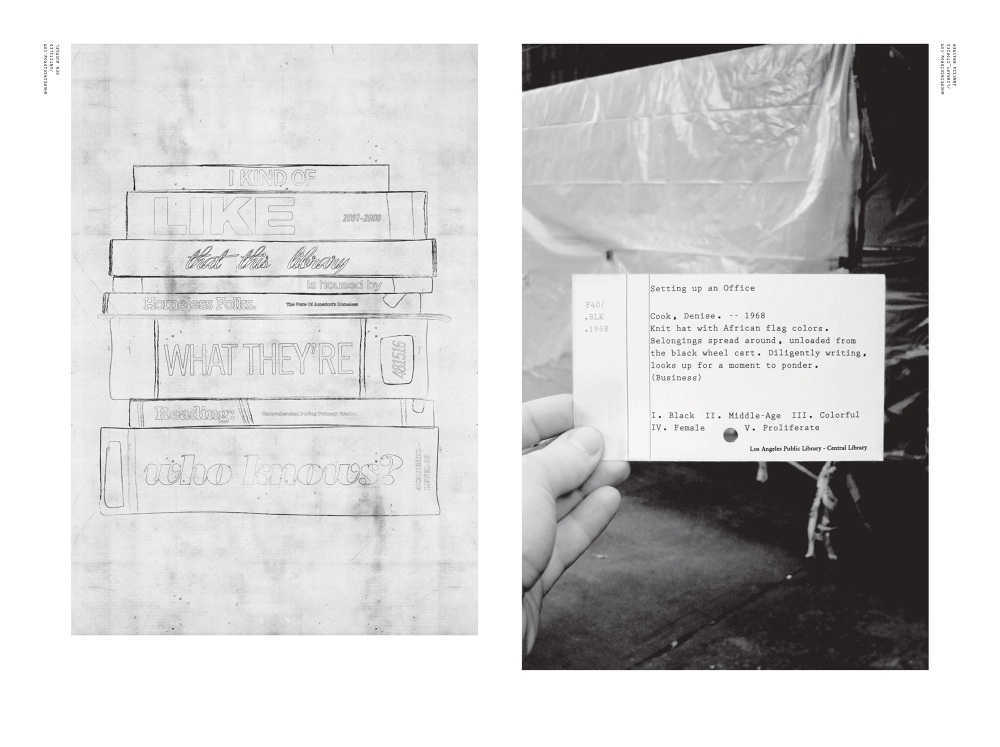 I KIND OF
LIKE
2001-2009
that this library
is housed by
Homeless Folks.
The Face Of America's Homeless
WHAT THEY'RE
481516
Reading:
Comprehension During Primary Grades.
who knows?
LEVEL 20
Setting up an Office
F40/
.BLK
.1968
Cook, Denise. -- 1968
Knit hat with African flag colors.
Belongings spread around, unloaded from
the black wheel cart. Diligently writing,
looks up for a moment to ponder.
(Business)
I. Black II. Middle-Age III. Colorful
IV. Female V. Proliferate
Los Angeles Public Library - Central Library